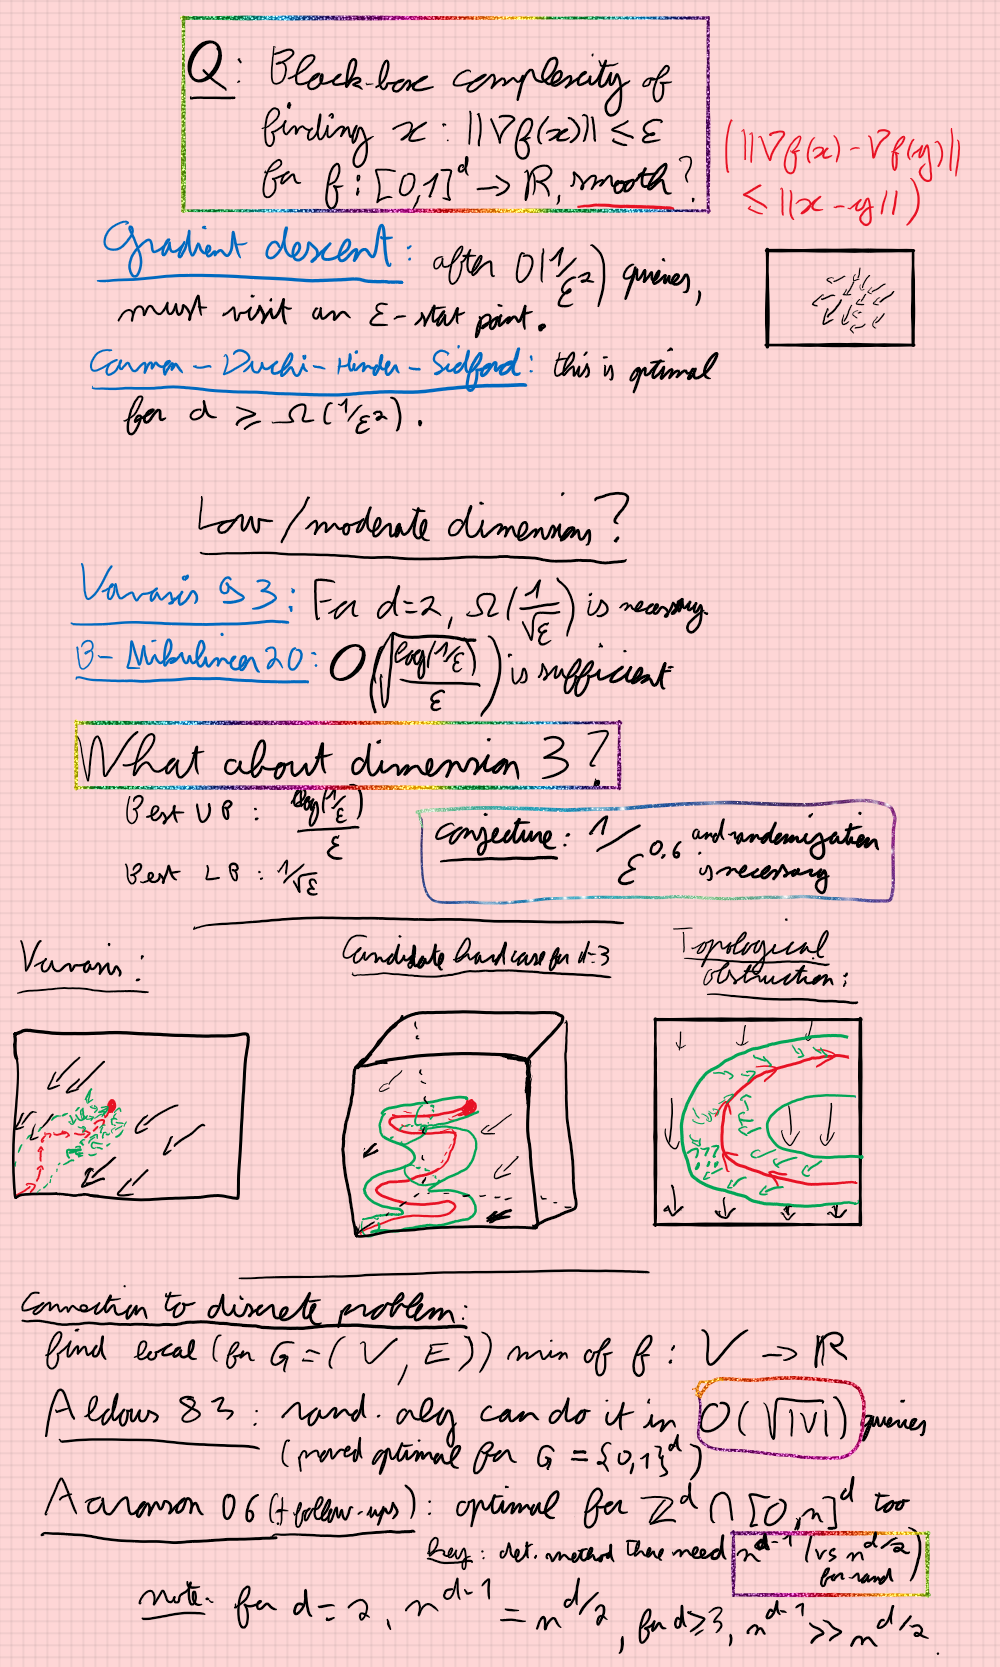 Q: Black-box complexity of
finding x : ||∇f(x)|| ≤ ε
for f : [0,1]^d → ℝ, smooth?
(||∇f(x) - ∇f(y)||
≤ ||x - y||)
Gradient descent: after O(1/ε²) queries,
must visit an ε-stat point.
Carmon - Duchi - Hinder - Sidford: this is optimal
for d ≥ Ω(1/ε²).
Low/moderate dimensions?
Vavasis 93: For d=2, Ω(1/√ε) is necessary.
B - Mikulincer 20: O(√(log(1/ε)/ε)) is sufficient
What about dimension 3?
Best UB : log(1/ε)/ε
Best LB : 1/√ε
Conjecture: 1/ε^0,6 and randomization
is necessary
Vavasis:
Candidate hard case for d=3
Topological
obstruction:
Connection to discrete problem:
find local (for G=(V,E)) min of f: V → ℝ
Aldous 83: rand. alg can do it in O(√|V|) queries
(proved optimal for G = {0,1}^d)
Aaronson 06 (+ follow-ups): optimal for ℤ^d ∩ [0,n]^d too
Key: det. method there need n^d-1 (vs n^d/2)
for rand
note: for d=2, n^d-1 = n^d/2, for d≥3, n^d-1 >> n^d/2.